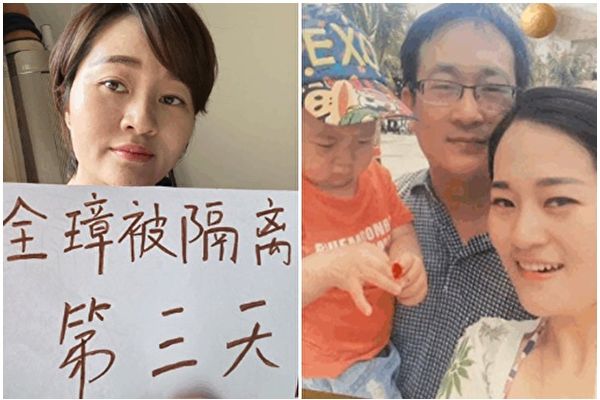 全璋被隔离
第三天
EXO